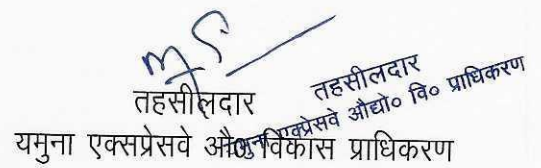 तहसीलदार
यमुना एक्सप्रेसवे औ० विकास प्राधिकरण
तहसीलदार
एक्सप्रेसवे औद्यो० वि० प्राधिकरण